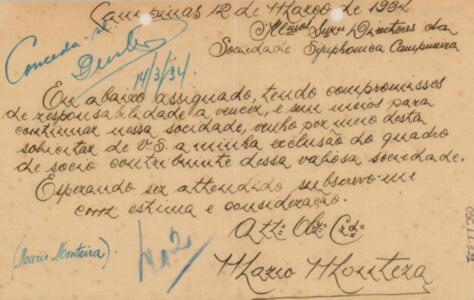 Campinas 12 de Março de 1934
Illmos Snrs Directores da
Sociedade Symphonica Campineira
Conceda-se
14/3/34
Eu abaixo assignado, tendo compromissos
de responsabilidade a vencer, e sem meios para
continuar nessa sociedade, venho por meio desta
solicitar de V.S. a minha exclusão do quadro
de socio contribuinte dessa valiosa sociedade.
Esperando ser attendido subscrevo-me
com estima e consideração.
Attº Obrº Crdº
(Mario Monteira).
Nº 2
Mario Montera